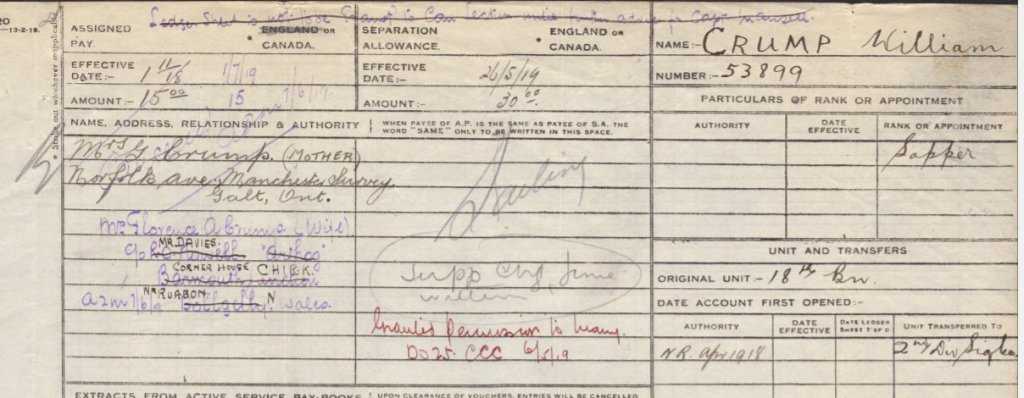 Ledger Sheet is not to be Transf to Can Section until further advice fr Capt
20
-13-2-18.
* Strike out whichever inapplicable
ASSIGNED PAY. * ENGLAND OR CANADA.
EFFECTIVE DATE:- 1 11/18 1/7/19
AMOUNT:- 15 00 15 7/6/19
SEPARATION ALLOWANCE. * ENGLAND OR CANADA.
EFFECTIVE DATE:- 26/5/19
AMOUNT:- 30 00
NAME, ADDRESS, RELATIONSHIP & AUTHORITY
WHEN PAYEE OF A.P. IS THE SAME AS PAYEE OF S.A. THE WORD "SAME" ONLY TO BE WRITTEN IN THIS SPACE.
Mrs G Crump. (MOTHER)
Norfolk ave Manchester Survey
Galt, Ont.
Mrs Florence A Crump (Wife)
MR. DAVIES.
c/o Howell "Arthog"
CORNER HOUSE CHIRK.
Barmouth Junction
NR RUABON N
a2m 7/6/19 Dolgelly. Wales
Sterling
Supp Chq June
written
Granted Permission to Marry.
DO 25 CCC 6/5/19
EXTRACTS FROM ACTIVE SERVICE PAY-BOOKS
UPON CLEARANCE OF VOUCHERS, ENTRIES WILL BE CANCELLED
NAME:- CRUMP William
NUMBER:- 53899
PARTICULARS OF RANK OR APPOINTMENT
AUTHORITY DATE EFFECTIVE RANK OR APPOINTMENT
Sapper
UNIT AND TRANSFERS
ORIGINAL UNIT:- 18th Bn.
DATE ACCOUNT FIRST OPENED:-
AUTHORITY DATE EFFECTIVE DATE LEDGER SHEET T'SF'D UNIT TRANSFERRED TO
N.R. Apr 1918 2nd Div Sig Co.